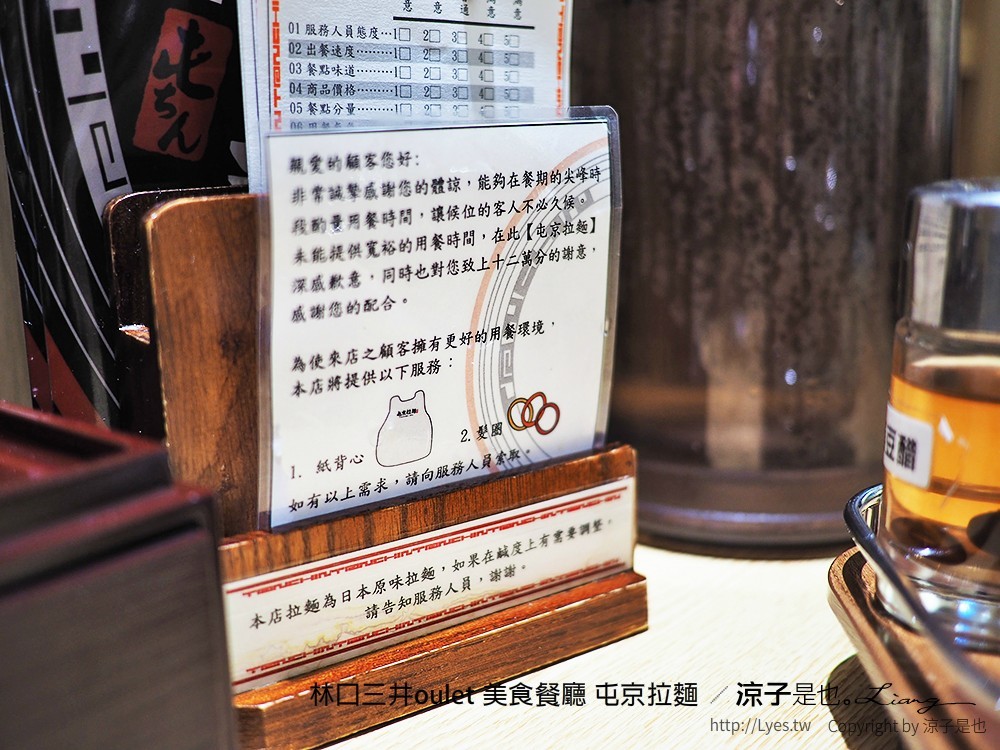 意 意 通 意 意
01 服務人員態度…1□ 2□ 3□ 4□ 5□
02 出餐速度………1□ 2□ 3□ 4□ 5□
03 餐點味道………1□ 2□ 3□ 4□ 5□
04 商品價格………1□ 2□ 3□ 4□ 5□
05 餐點分量………1□ 2□ 3□ 4□ 5□
屯ちん
親愛的顧客您好:
非常誠摯感謝您的體諒，能夠在餐期的尖峰時
段酌量用餐時間，讓候位的客人不必久候。
未能提供寬裕的用餐時間，在此【屯京拉麵】
深感歉意，同時也對您致上十二萬分的謝意，
感謝您的配合。
為使來店之顧客擁有更好的用餐環境，
本店將提供以下服務：
1. 紙背心
2. 髮圈
如有以上需求，請向服務人員索取。
本店拉麵為日本原味拉麵，如果在鹹度上有需要調整。
請告知服務人員，謝謝。
豆醋
林口三井oulet 美食餐廳 屯京拉麵 ／ 涼子是也。Liang
http://Lyes.tw Copyright by 涼子是也